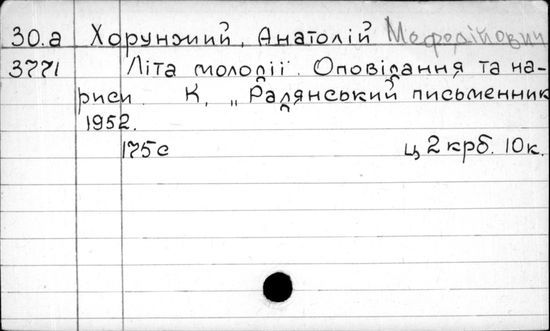 30.а Хорунжий, Анатолій Мефодійович
3771 Літа молодії. Оповідання та на-
риси. К, „Радянський письменник
1952.
175с ц 2 крб. 10к.